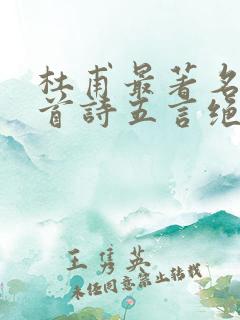 杜甫最著名
首詩五言绝
王隽英
未经同意禁止转载